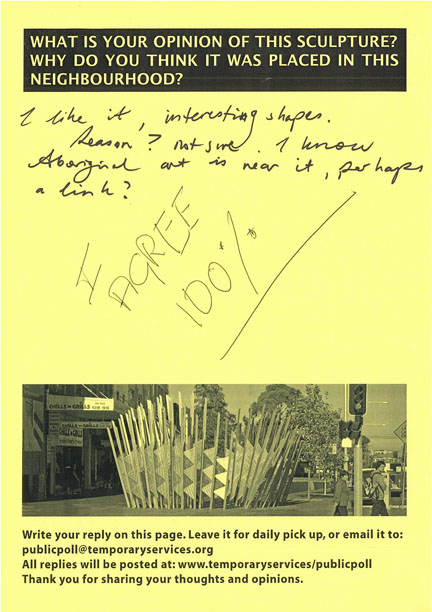 WHAT IS YOUR OPINION OF THIS SCULPTURE?
WHY DO YOU THINK IT WAS PLACED IN THIS
NEIGHBOURHOOD?
I like it, interesting shapes.
Reason? not sure. I know
Aboriginal art is near it, perhaps
a link?
I
AGREE
100%
CHILLI GRILLS
Write your reply on this page. Leave it for daily pick up, or email it to:
publicpoll@temporaryservices.org
All replies will be posted at: www.temporaryservices/publicpoll
Thank you for sharing your thoughts and opinions.